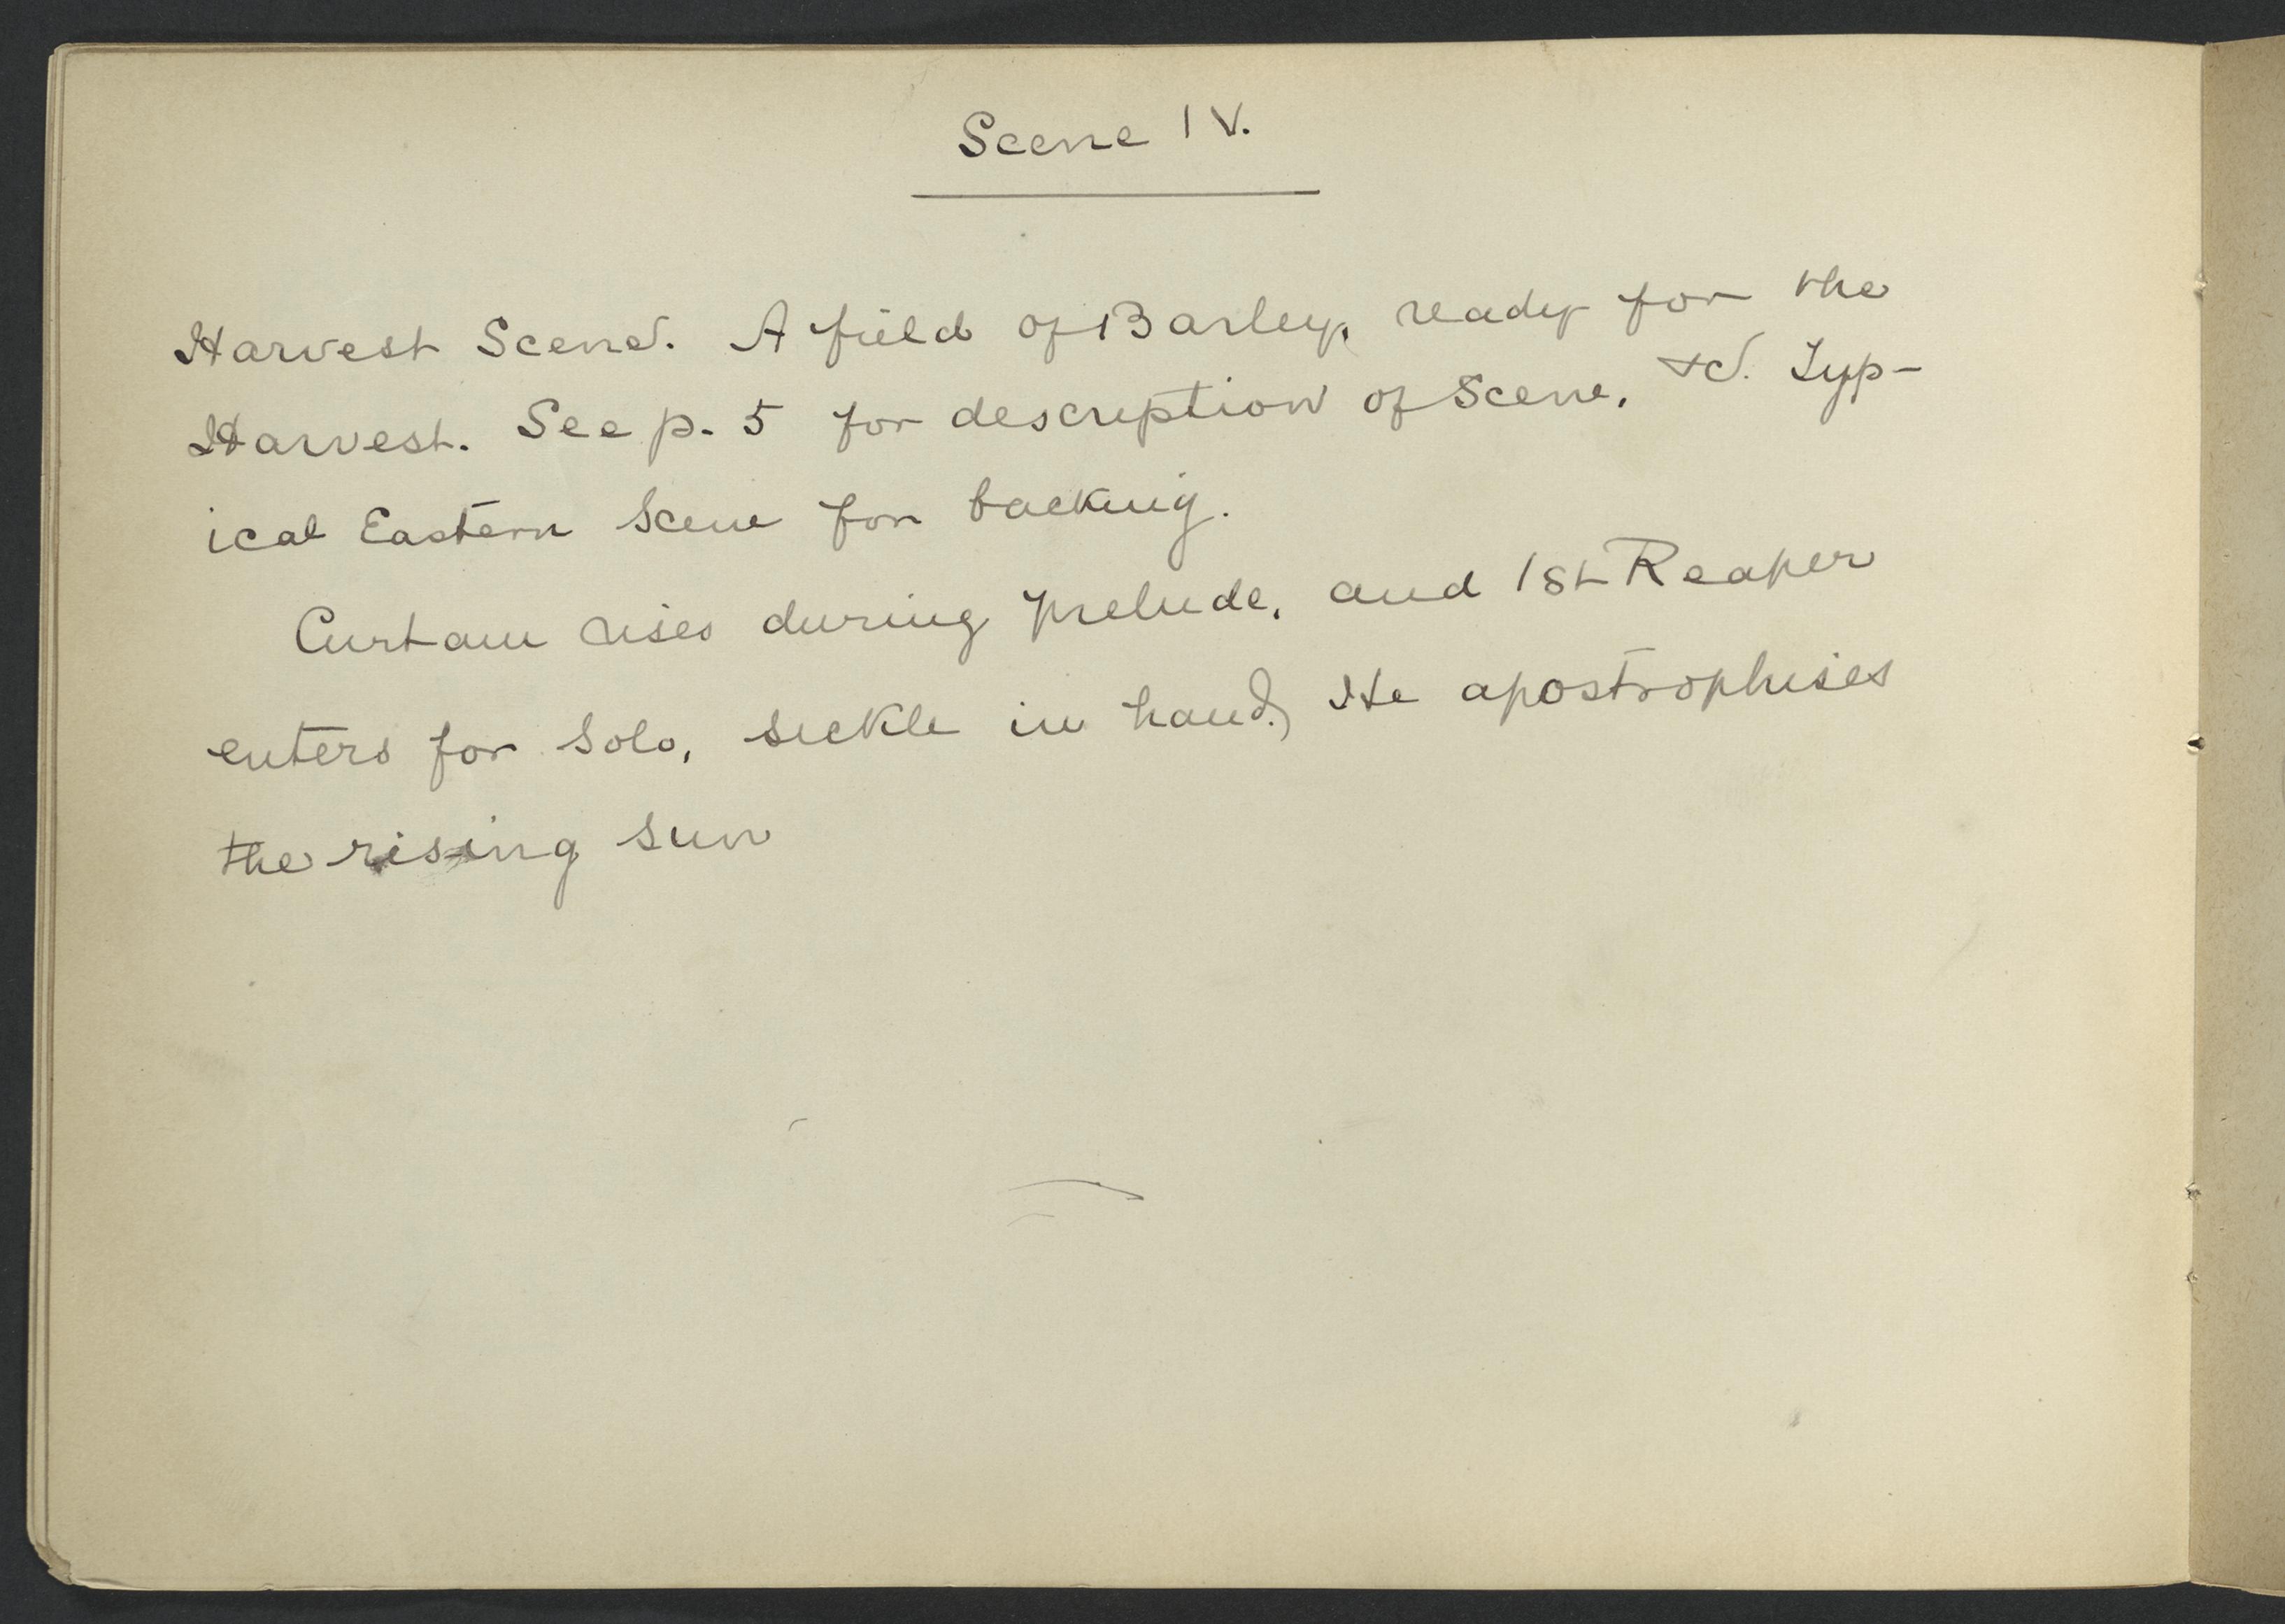 Scene IV.
Harvest Scene. A field of Barley, ready for the
Harvest. See p. 5 for description of Scene, &c. Typ-
ical Eastern Scene for backing.
Curtain rises during prelude, and 1st Reaper
enters for Solo, sickle in hand. He apostrophises
the rising sun